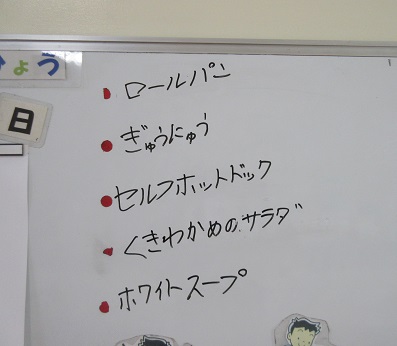 ひょう
日
ロールパン
ぎゅうにゅう
セルフホットドック
くきわかめのサラダ
ホワイトスープ